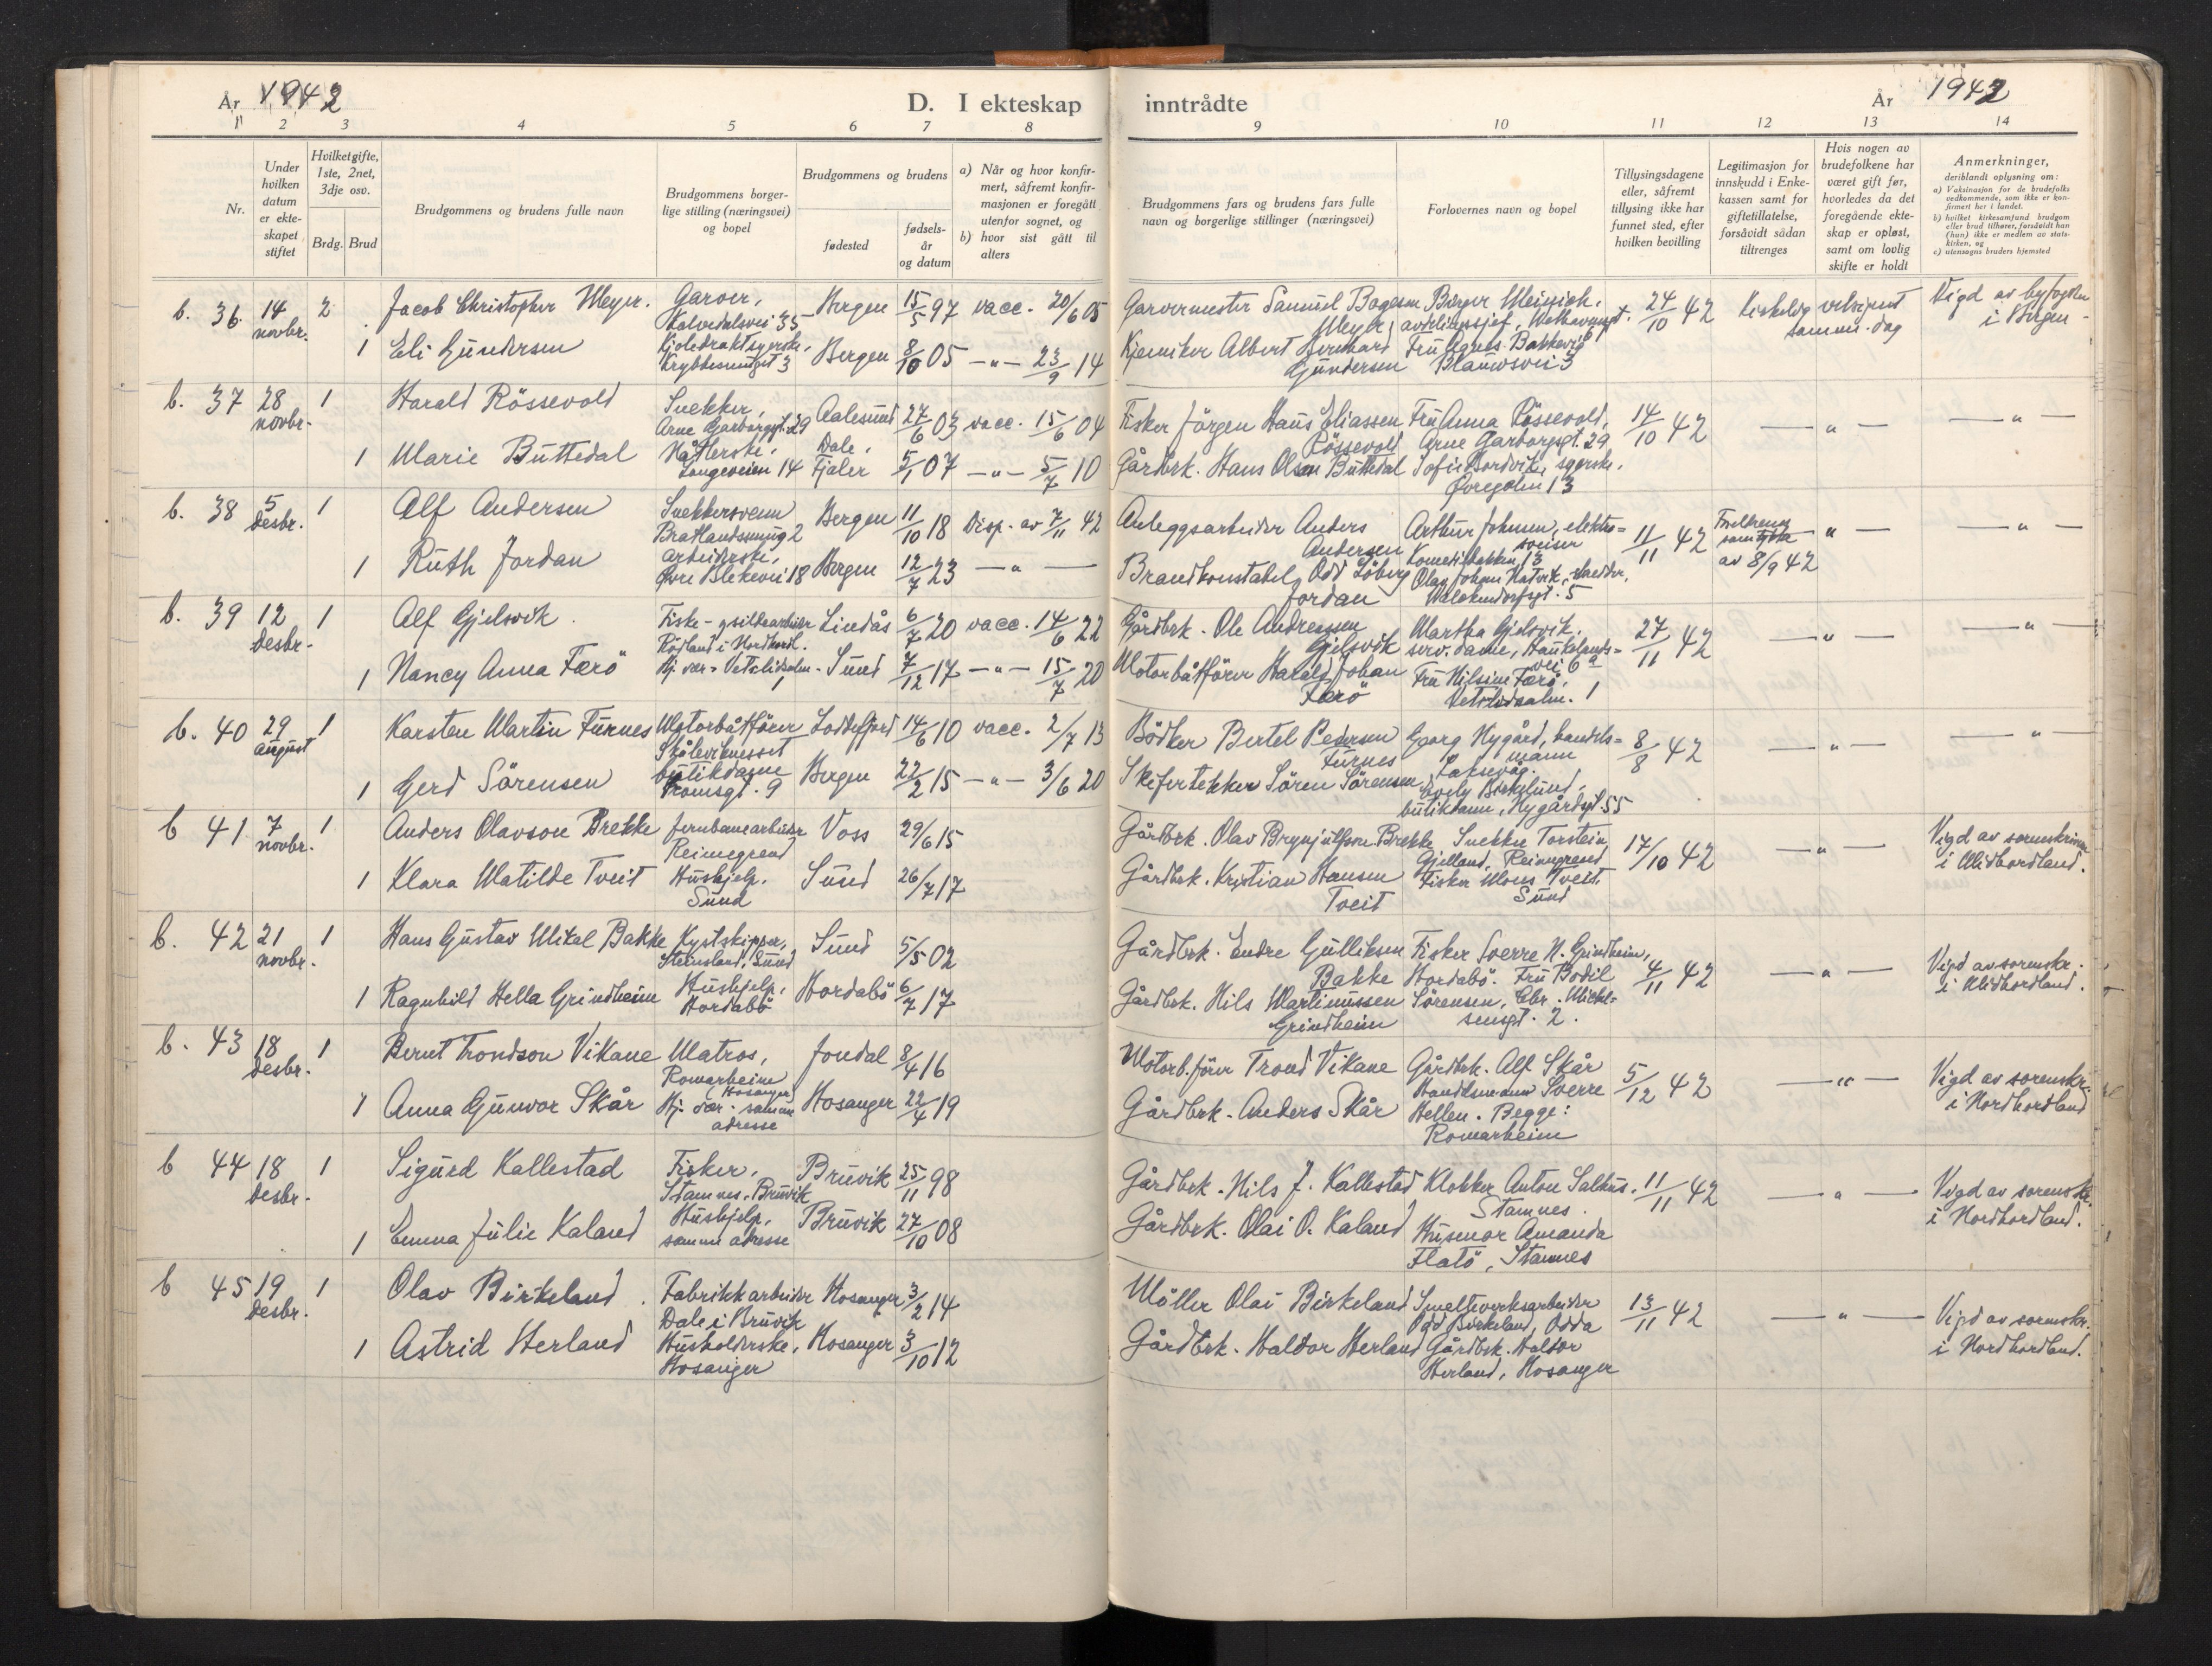 År 1942
D. I ekteskap
inntrådte
År 1942
1 2 3 4 5 6 7 8
9 10 11 12 13 14
Nr.
Under hvilken datum er ekteskapet stiftet
Hvilket gifte, 1ste, 2net, 3dje osv.
Brdg. Brud
Brudgommens og brudens fulle navn
Brudgommens borgerlige stilling (næringsvei) og bopel
Brudgommens og brudens
fødested
fødselsår og datum
a) Når og hvor konfirmert, såfremt konfirmasjonen er foregått utenfor sognet, og
b) hvor sist gått til alters
Brudgommens fars og brudens fars fulle navn og borgerlige stillinger (næringsvei)
Forlovernes navn og bopel
Tillysingsdagene eller, såfremt tillysing ikke har funnet sted, efter hvilken bevilling
Legitimasjon for innskudd i Enkekassen samt for giftetillatelse, forsåvidt sådan tiltrenges
Hvis nogen av brudefolkene har været gift før, hvorledes da det foregående ekteskap er opløst, samt om lovlig skifte er holdt
Anmerkninger, deriblandt oplysning om:
a) Vaksinasjon for de brudefolks vedkommende, som ikke er konfirmert her i landet.
b) hvilket kirkesamfund brudgom eller brud tilhører, forsåvidt han (hun) ikke er medlem av statskirken, og
c) utensogns bruders hjemsted
b. 36. 14 novbr. 2 Jacob Christopher Meyer. Garver, Kalvedalsvei 35 Bergen 15/5 97 vacc. 20/6 05 Garvermester Samuel Meyer Birger Meinich, avdelingsjef, 24/10 42 Vigd av byfogden i Bergen
1 Eli Gundersen Kjoledraktsyerske, Krybbesmuget 3 Bergen 8/10 05 -"- 23/9 14 Kjemiker Albert Bernhard Gundersen Fru Agnes Blauwsvei 3
b. 37 28 novbr. 1 Harald Rössevold Snekker, Arne Garborgsgt. 29 Aalesund 27/6 03 vacc. 15/6 04 Fisker Jörgen Hans Eliassen Rössevold Fru Anna Rössevold, Arne Garborgsgt. 29 14/10 42 -"- -"-
1 Marie Buttedal Langeveien 14 Dale, Fjaler 5/1 07 -"- 5/7 10 Gårdbrk. Hans Olsen Buttedal Sofie Nordvik, syerske, Øvregaten 13
b. 38 5 desbr. 1 Alf Andersen Snekkersvenn Bratlandssmug 2 Bergen 11/10 18 Disp. av 7/11 42 Anleggsarbeider Anders Andersen Arthur Johnsen, elektrosveiser 11/11 42 Foreldrenes samtykke av 8/9 42 -"- -"-
1 Ruth Jordan arbeiderske, Øvre Blekevei 18 Bergen 12/7 23 -"- Brandkonstabel Odd Löberg Jordan Olav Johan Hatvik, skredder, Walckendorfsgt. 5
b. 39 12 desbr. 1 Alf Gjelsvik Fiske- og sildearbeider Lindås 6/7 20 vacc. 14/6 22 Gårdbrk. Ole Andreassen Gjelsvik Martha Gjelsvik, serv. dame, Haukelandsvei 6a 27/11 42 -"- -"-
1 Nancy Anna Færö Hj. vær. Vetrlidsalm. 1 Sund 7/12 17 -"- 15/7 20 Motorbåtförer Harald Johan Færö Fru Nilsine Færö, Vetrlidsalm. 1
b. 40 29 august 1 Karsten Martin Furnes Motorbåtförer Skåleviknesset Loddefjord 14/6 10 vacc. 2/7 13 Bödker Bertel Pedersen Furnes Georg Nygård, handelsmann Laksevåg. 8/8 42 -"- -"-
1 Gerd Sörensen butikdame Tromsgt. 9 Bergen 22/2 15 -"- 3/6 20 Skifertekker Sören Sörensen Birkelund, butikdame, Nygårdsgt 55
b 41 7 novbr. 1 Anders Olavson Brekke Jernbanearbeider Reimegrend Voss 29/6 15 Gårdbrk. Olav Brynjulfson Brekke Snekker Torstein Gjelland, Reimegrend 17/10 42 -"- Vigd av sorenskriver i Midthordland.
1 Klara Matilde Tveit Hushjelp. Sund Sund 26/7 17 Gårdbrk. Kristian Hansen Tveit Fisker Mons Tveit, Sund
b. 42 21 novbr. 1 Hans Gustav Mikal Bakke Kystskipper, Steinsland, Sund Sund 5/5 02 Gårdbrk. Endre Gulliksen Bakke Fisker Sverre N. Grindheim, Hordabö. Fru Bodil Sörensen, Chr. Michelsensgt. 2. 4/11 42 -"- Vigd av sorenskr. i Midthordland.
1 Ragnhild Hella Grindheim Hushjelp, Hordabö Hordabö 6/7 17 Gårdbrk. Nils Martinussen Grindheim
b. 43 18 desbr. 1 Bernt Trondson Vikane Matros, Romarheim (Hosanger) Jondal 8/4 16 Motorb.förer Trond Vikane Gårdbrk. Alf Skår Handelsmann Sverre Hellen. Begge: Romarheim 5/12 42 -"- Vigd av sorenskr. i Nordhordland
1 Anna Gunvor Skår Hj. vær. samme adresse Hosanger 22/4 19 Gårdbrk. Anders Skår
b 44 18 desbr. 1 Sigurd Kallestad Fisker, Stamnes, Bruvik Bruvik 25/11 98 Gårdbrk. Nils J. Kallestad Klokker Anton Salhus, Stamnes. 11/11 42 -"- Vigd av sorenskr. i Nordhordland.
1 Emma Julie Kaland Hushjelp, samme adresse Bruvik 27/10 08 Gårdbrk. Olai O. Kaland Husmor Amanda Flatö, Stamnes
b 45 19 desbr. 1 Olav Birkeland Fabrikkarbeider Dale i Bruvik Hosanger 3/2 14 Möller Olai Birkeland Smelteverksarbeider Odd Birkeland, Odda 13/11 42 -"- Vigd av sorenskr. i Nordhordland.
1 Astrid Herland Husholderske, Hosanger Hosanger 3/10 12 Gårdbrk. Haldor Herland Gårdbrk. Haldor Herland, Hosanger